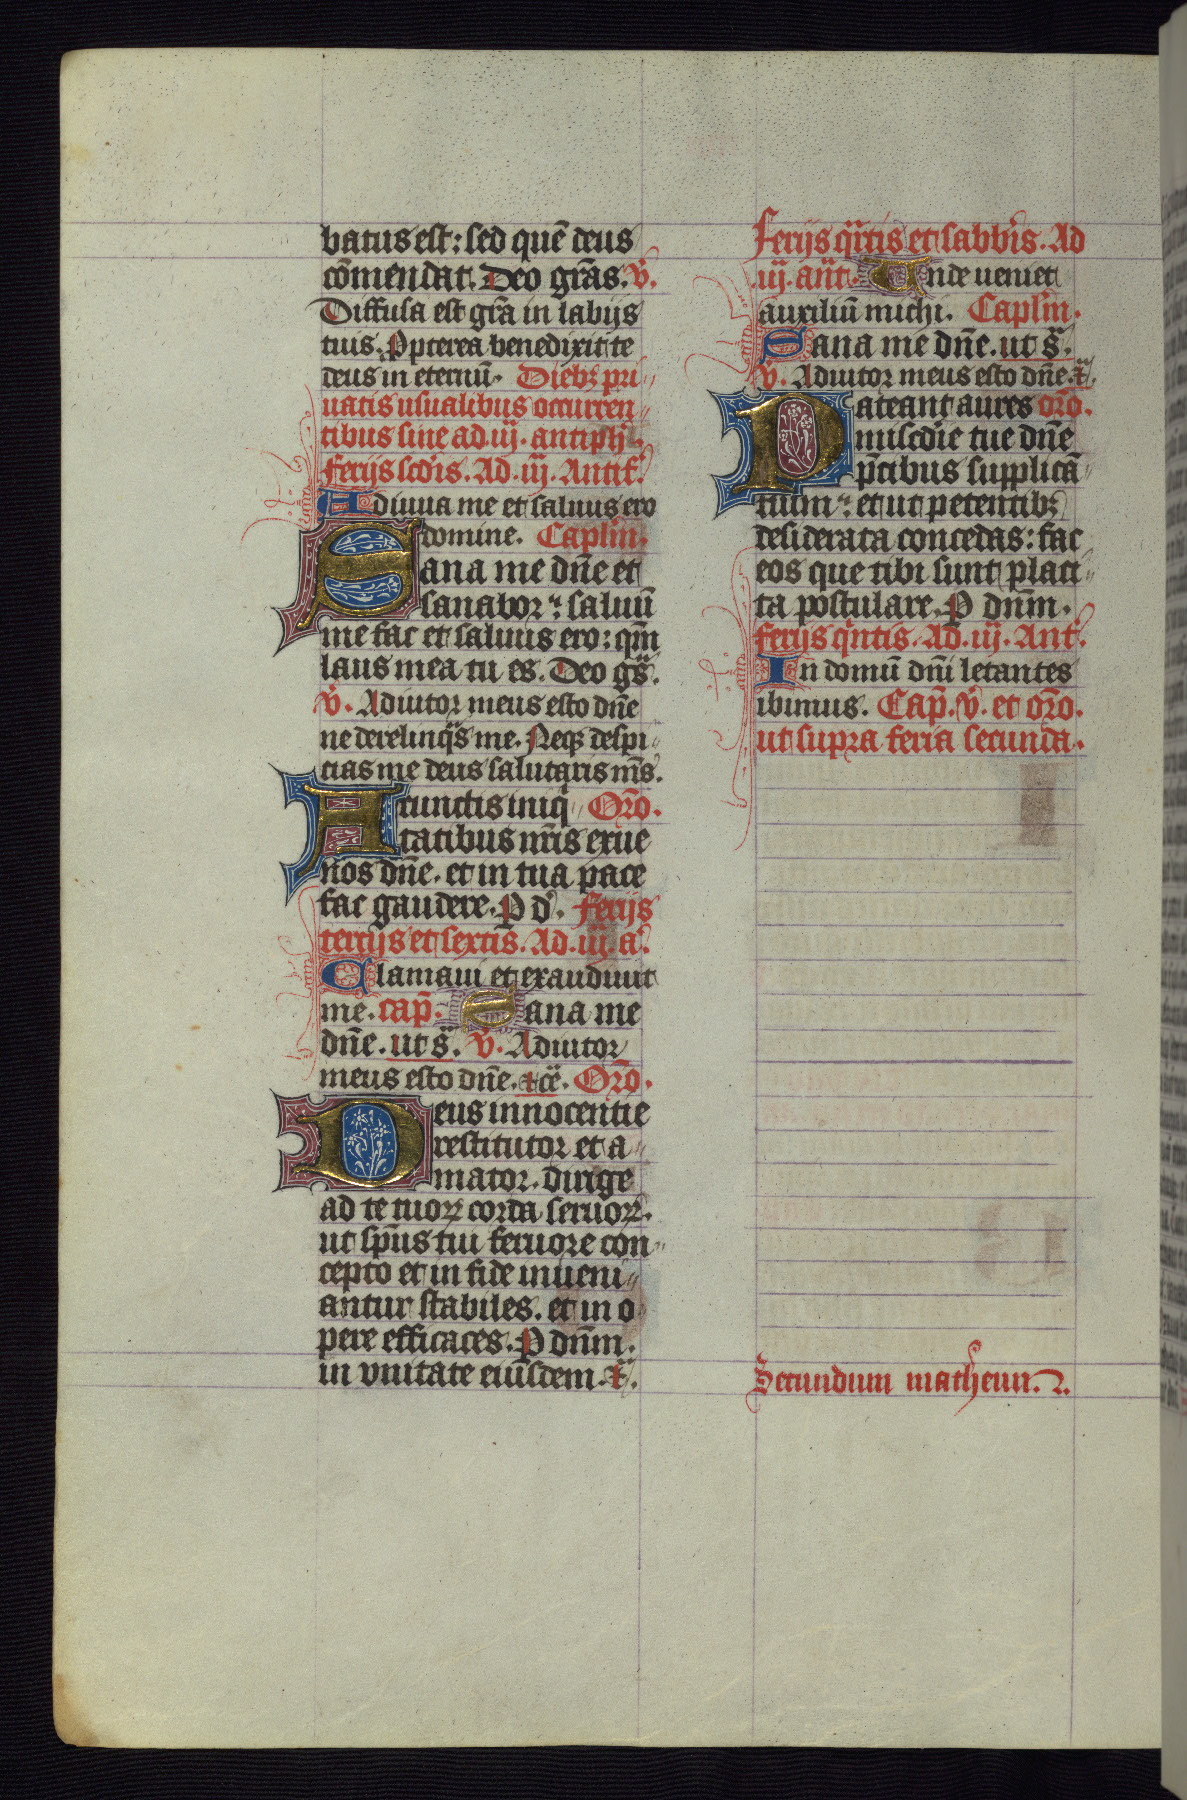 batus est: sed quē deus
cōmendat. Deo grās. V̄.
Diffusa est grā in labijs
tuis. Ppterea benedixit te
deus in eternū. Diebꝫ pri
uatis usualibus occurren
tibus siue ad .iij. antiphˀ.
Ferijs scd̄is. Ad .iij. Antif.
Adiuua me et saluus ero
domine. Caplm̄.
Sana me dn̄e et
sanabor: saluū
me fac et saluus ero: qm̄
laus mea tu es. Deo gs̄.
V̄. Adiutor meus esto dn̄e
ne derelinqˢs me. Neqꝫ despi
cias me deus salutaris ms̄.
A cunctis iniq Orō.
tatibus nr̄is erue
nos dn̄e. et in tua pace
fac gaudere. P d̄. Ferijs
tercijs et sextis. Ad .iij. a.
Clamaui et exaudiuit
me. cap̄. Sana me
dn̄e. ut sᵃ. V̄. Adiutor
meus esto dn̄e. ⁊cē. Orō.
Deus innocentie
restitutor et a
mator. dirige
ad te tuoꝝ corda seruoꝝ.
ut sp̄us tui feruore con
cepto et in fide inueni
antur stabiles. et in o
pere efficaces. P dn̄m.
in vnitate eiusdem. ⁊c̄.
Ferijs qͬtis et sabbīs. Ad
.iij. an̄t. Vnde ueniet
auxiliū michi. Caplm̄.
Sana me dn̄e. ut sᵃ.
V̄. Adiutor meus esto dn̄e. ⁊c̄.
Pateant aures orō.
miscd̄ie tue dn̄e
p̄cibus supplicā
tium: et ut petentibꝫ
desiderata concedas: fac
eos que tibi sunt placi
ta postulare. P dn̄m.
Ferijs qͥntis. Ad .iij. Ant.
In domū dn̄i letantes
ibimus. Cap̄. V̄. et orō.
ut supra feria secunda.
Secundum matheum.